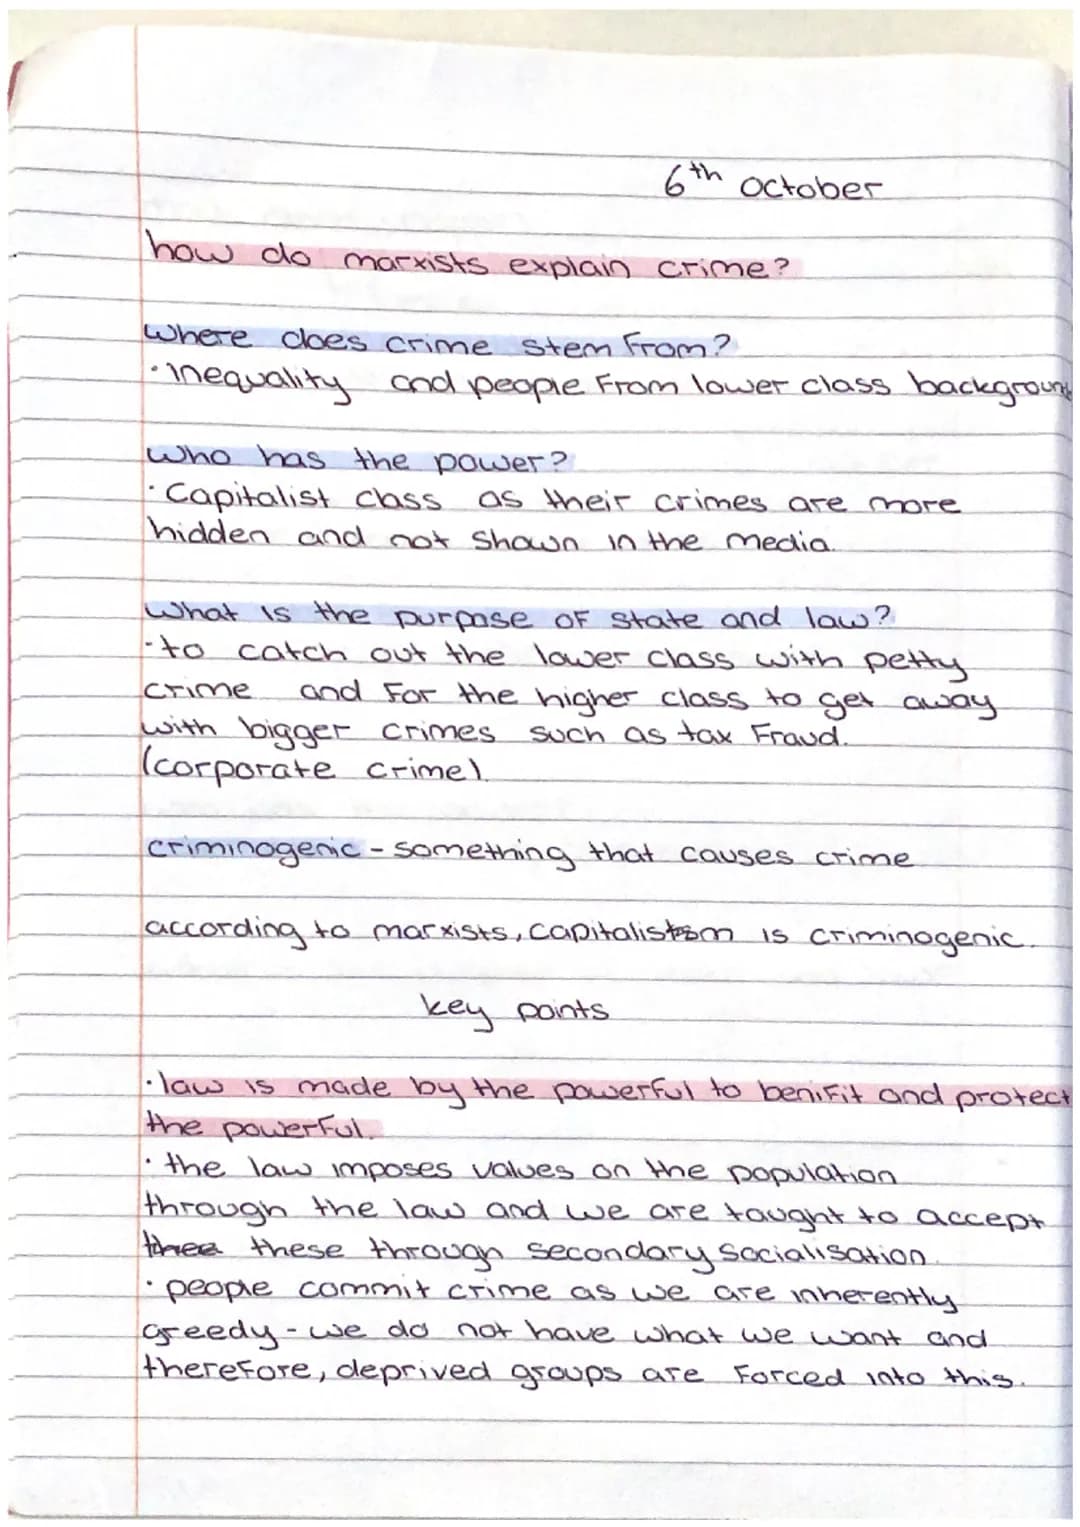 6th October
how do marxists explain crime?
where does crime stem from?
· inequality and people from lower class background
who has the power?
· Capitalist class as their crimes are more
hidden and not shown in the media.
what is the purpose of state and law?
· to catch out the lower class with petty
crime and for the higher class to get away
with bigger crimes such as tax fraud.
(corporate crime).
criminogenic - something that causes crime
according to marxists, capitalism is criminogenic.
key points
· law is made by the powerful to benifit and protect
the powerful.
· the law imposes values on the population
through the law and we are taught to accept
these through secondary socialisation.
· people commit crime as we are inherently
greedy - we do not have what we want and
therefore, deprived groups are forced into this.